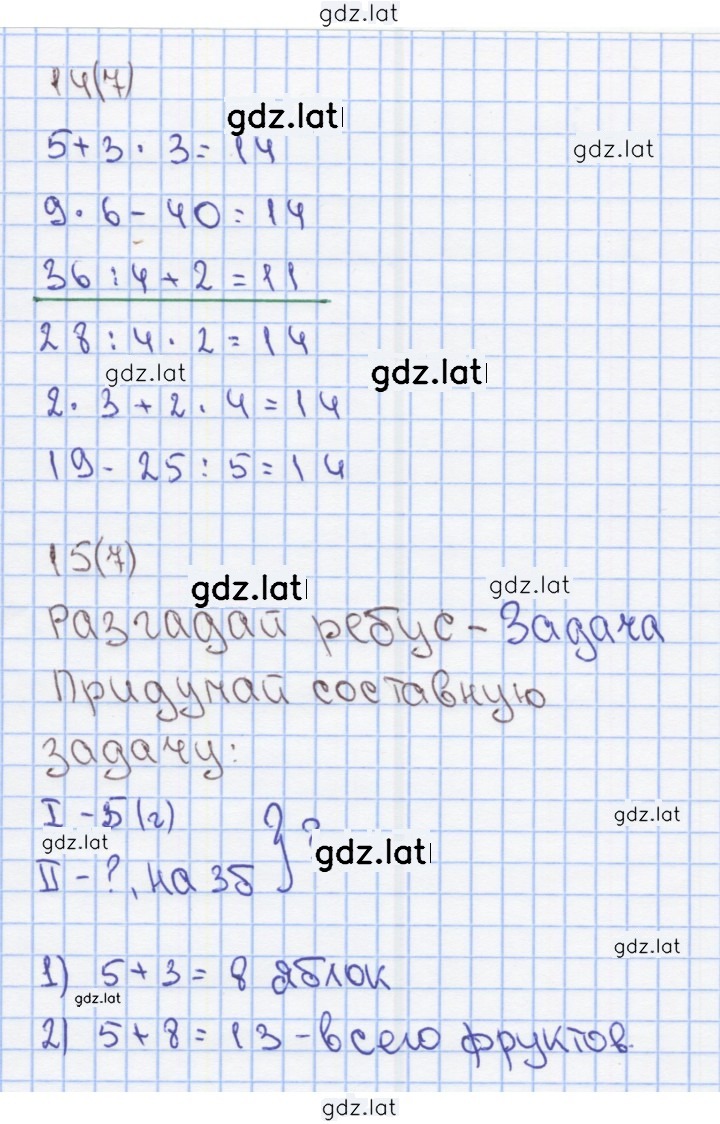 gdz.lat
14(7)
gdz.lat
5+3·3=14
gdz.lat
9·6-40=14
36:4+2=11
28:4·2=14
gdz.lat
gdz.lat
2·3+2·4=14
19-25:5=14
15(7)
gdz.lat
gdz.lat
Разгадай ребус-Задача
Придумай составную
задачу:
I-5(г) } ?
gdz.lat
gdz.lat
II-?, на 3б
gdz.lat
gdz.lat
1) 5+3=8 яблок
gdz.lat
2) 5+8=13-всего фруктов.
gdz.lat